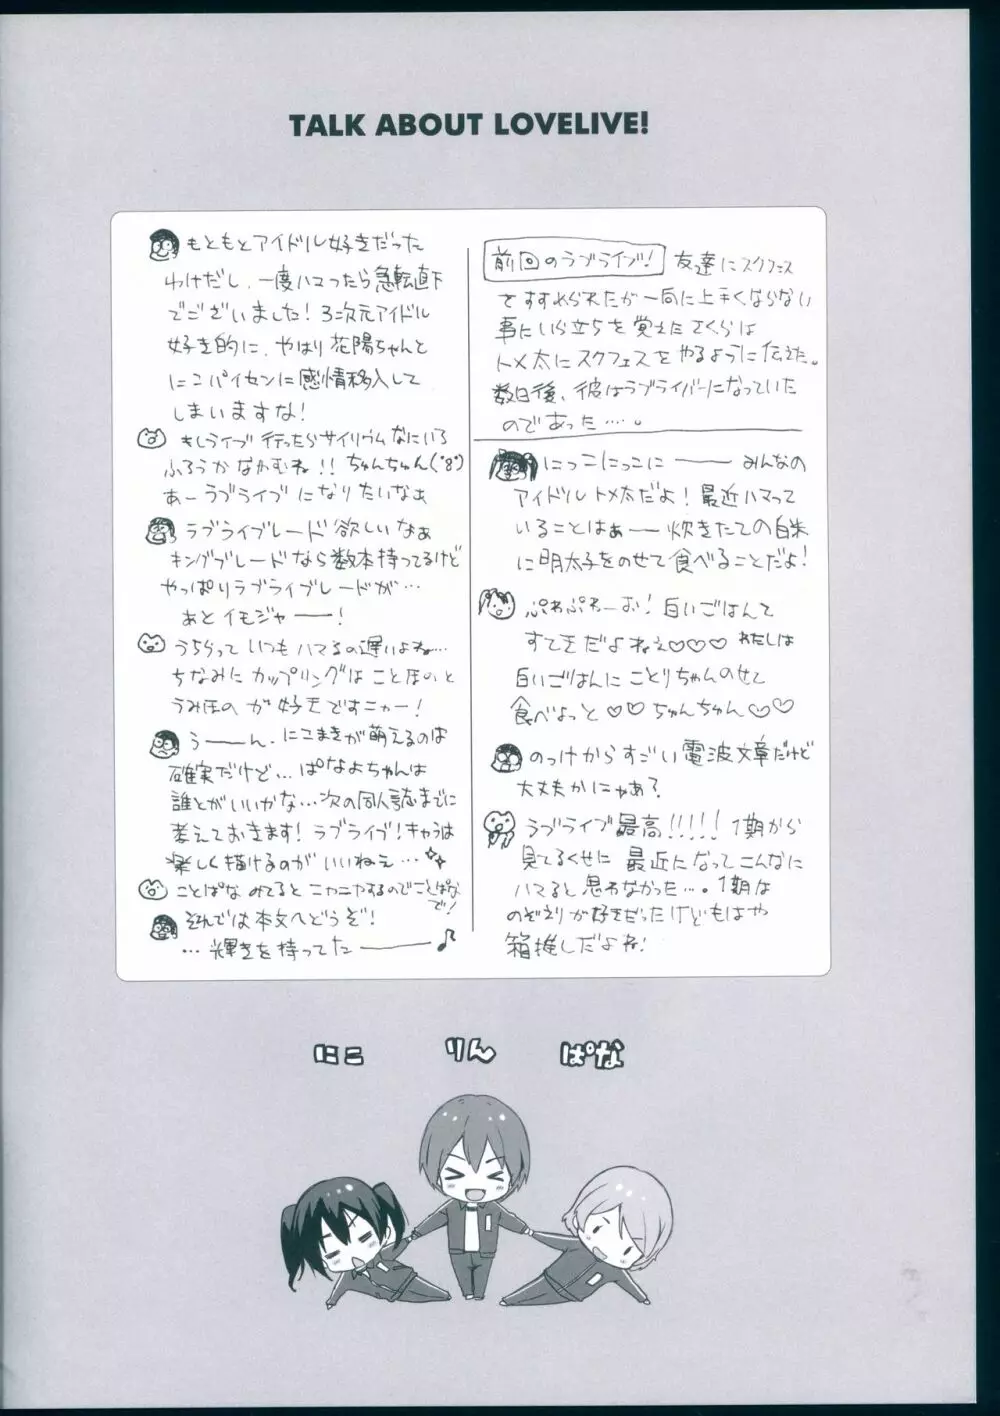 TALK ABOUT LOVELIVE!
前回のラブライブ! 友達にスクフェス
をすすめられたが一向に上手くならない
事にいら立ちを覚えたさくらは
トメ太にスクフェスをやるように伝えた。
数日後、彼はラブライバーになっていた
のであった…。
にっこにっこに―― みんなの
アイドルトメ太だよ! 最近ハマって
いることはぁー 炊きたての白米
に明太子をのせて食べることだよ!
ぷわぷわーお! 白いごはんて
すてきだよねぇ♡♡♡ わたしは
白いごはんにことりちゃんのせて
食べよっと♡♡ちゅんちゅん♡♡
のっけからすごい電波文章だけど
大丈夫かにゃあ?
ラブライブ最高!!!!! 1期から
見てるくせに 最近になってこんなに
ハマると思わなかった…。1期は
のぞえりが好きだったけどもはや
箱推しだよね!
もともとアイドル好きだった
わけだし、一度ハマったら急転直下
でございました! 3次元アイドル
好き的に、やはり花陽ちゃんと
にこパイセンに感情移入して
しまいますな!
もしライブ行ったらサイリウムなにいろ
ふろうかなかむね!! ちゅんちゅん(°8°)
あーラブライブになりたいなぁ
ラブライブレード欲しいなぁ
キングブレードなら数本持ってるけど
やっぱりラブライブレードが…
あとイモジャ――!
うちらっていつもハマるの遅いよね…
ちなみにカップリングはことほのと
うみほのが好きですニャー!
う――ん、にこまきが萌えるのは
確実だけど…ぱなよちゃんは
誰とがいいかな…次の同人誌までに
考えておきます! ラブライブ!キャラは
楽しく描けるのがいいねえ…
ことぱなみてるとニヤニヤするのでことぱな
で!
それでは本文へどうぞ!
…輝きを持ってた――♪
にこ りん ぱな